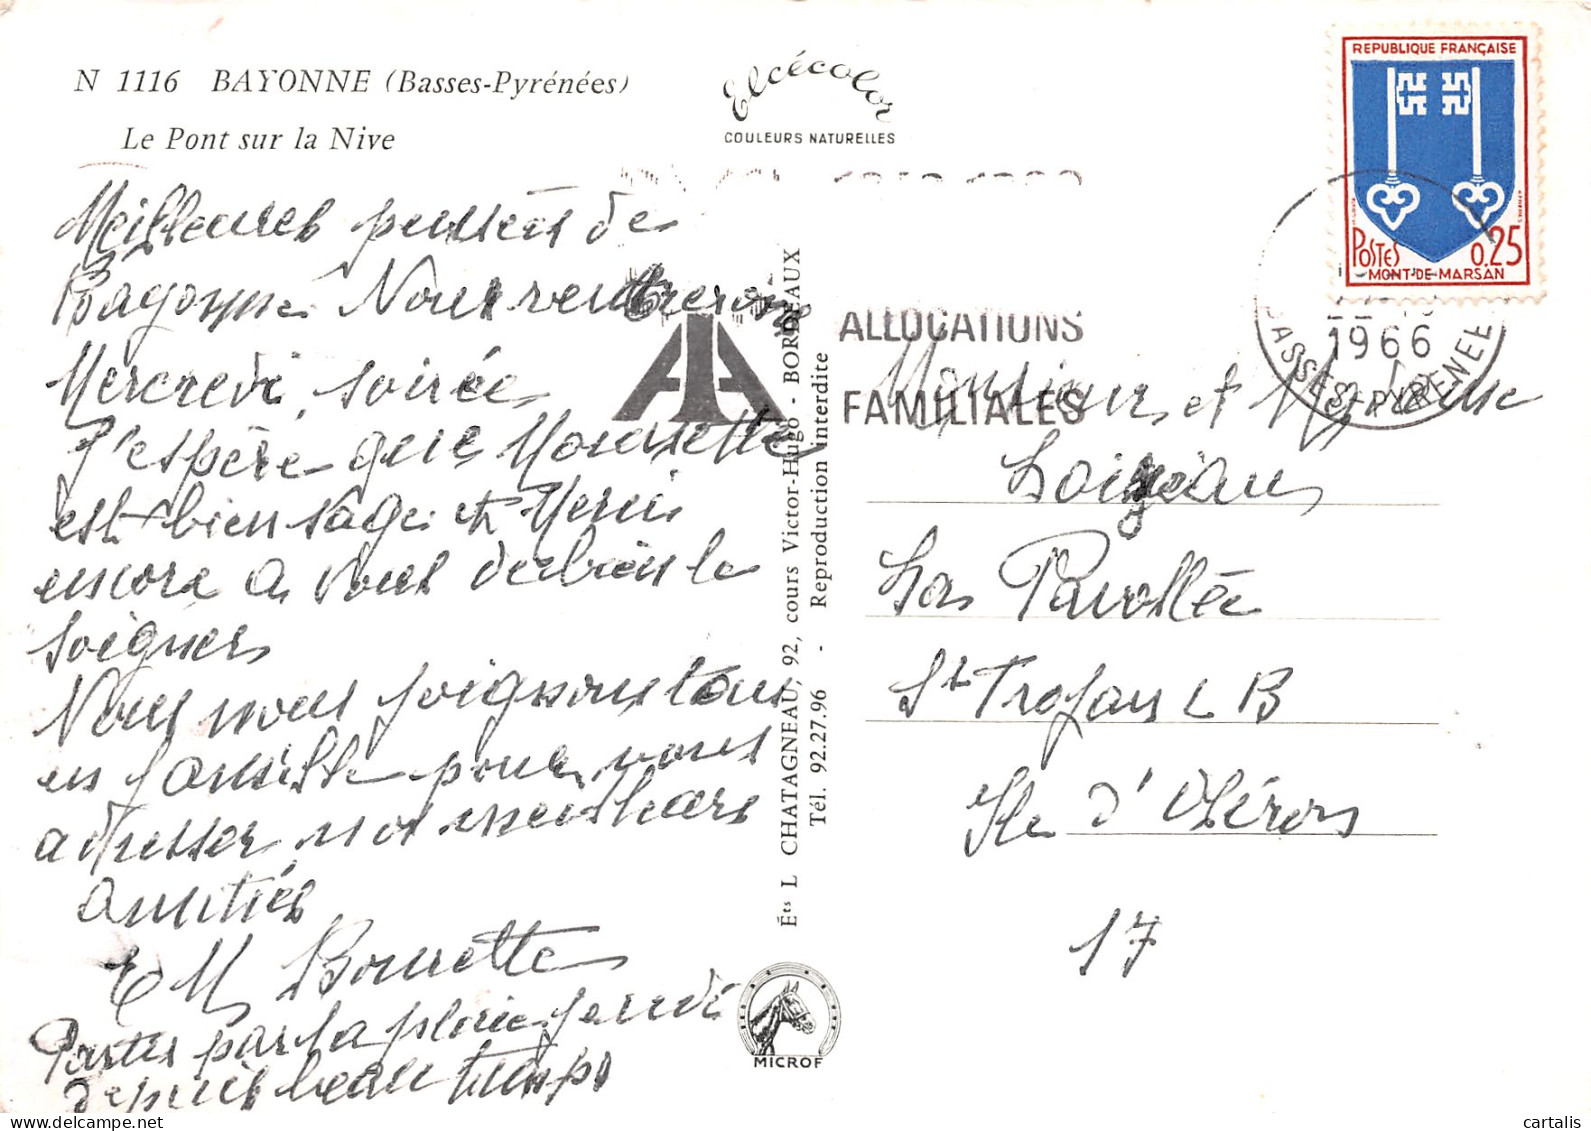 N 1116 BAYONNE (Basses-Pyrénées)
Le Pont sur la Nive
Elcécolor
COULEURS NATURELLES
REPUBLIQUE FRANÇAISE
POSTES 0,25
MONT-DE-MARSAN
1966
BASSES-PYRENEES
ALLOCATIONS
FAMILIALES
Meilleures pensées de
Bayonne. Nous rentrerons
Mercredi soirée
J'espère que Mounette
est bien sage et Merci
encore à vous de bien le
soigner
Nous nous joignons tous
en famille pour vous
adresser nos meilleures
amitiés
E M Bonnette
Partis par la pluie jeudi
depuis beau temps
Éts L CHATAGNEAU, 92, cours Victor-Hugo - BORDEAUX
Tél. 92.27.96 - Reproduction interdite
MICROF
Monsieur et Madame
Loizeau
La Pavollée
St Trojan L B
Ile d'Oléron
17
cartalis